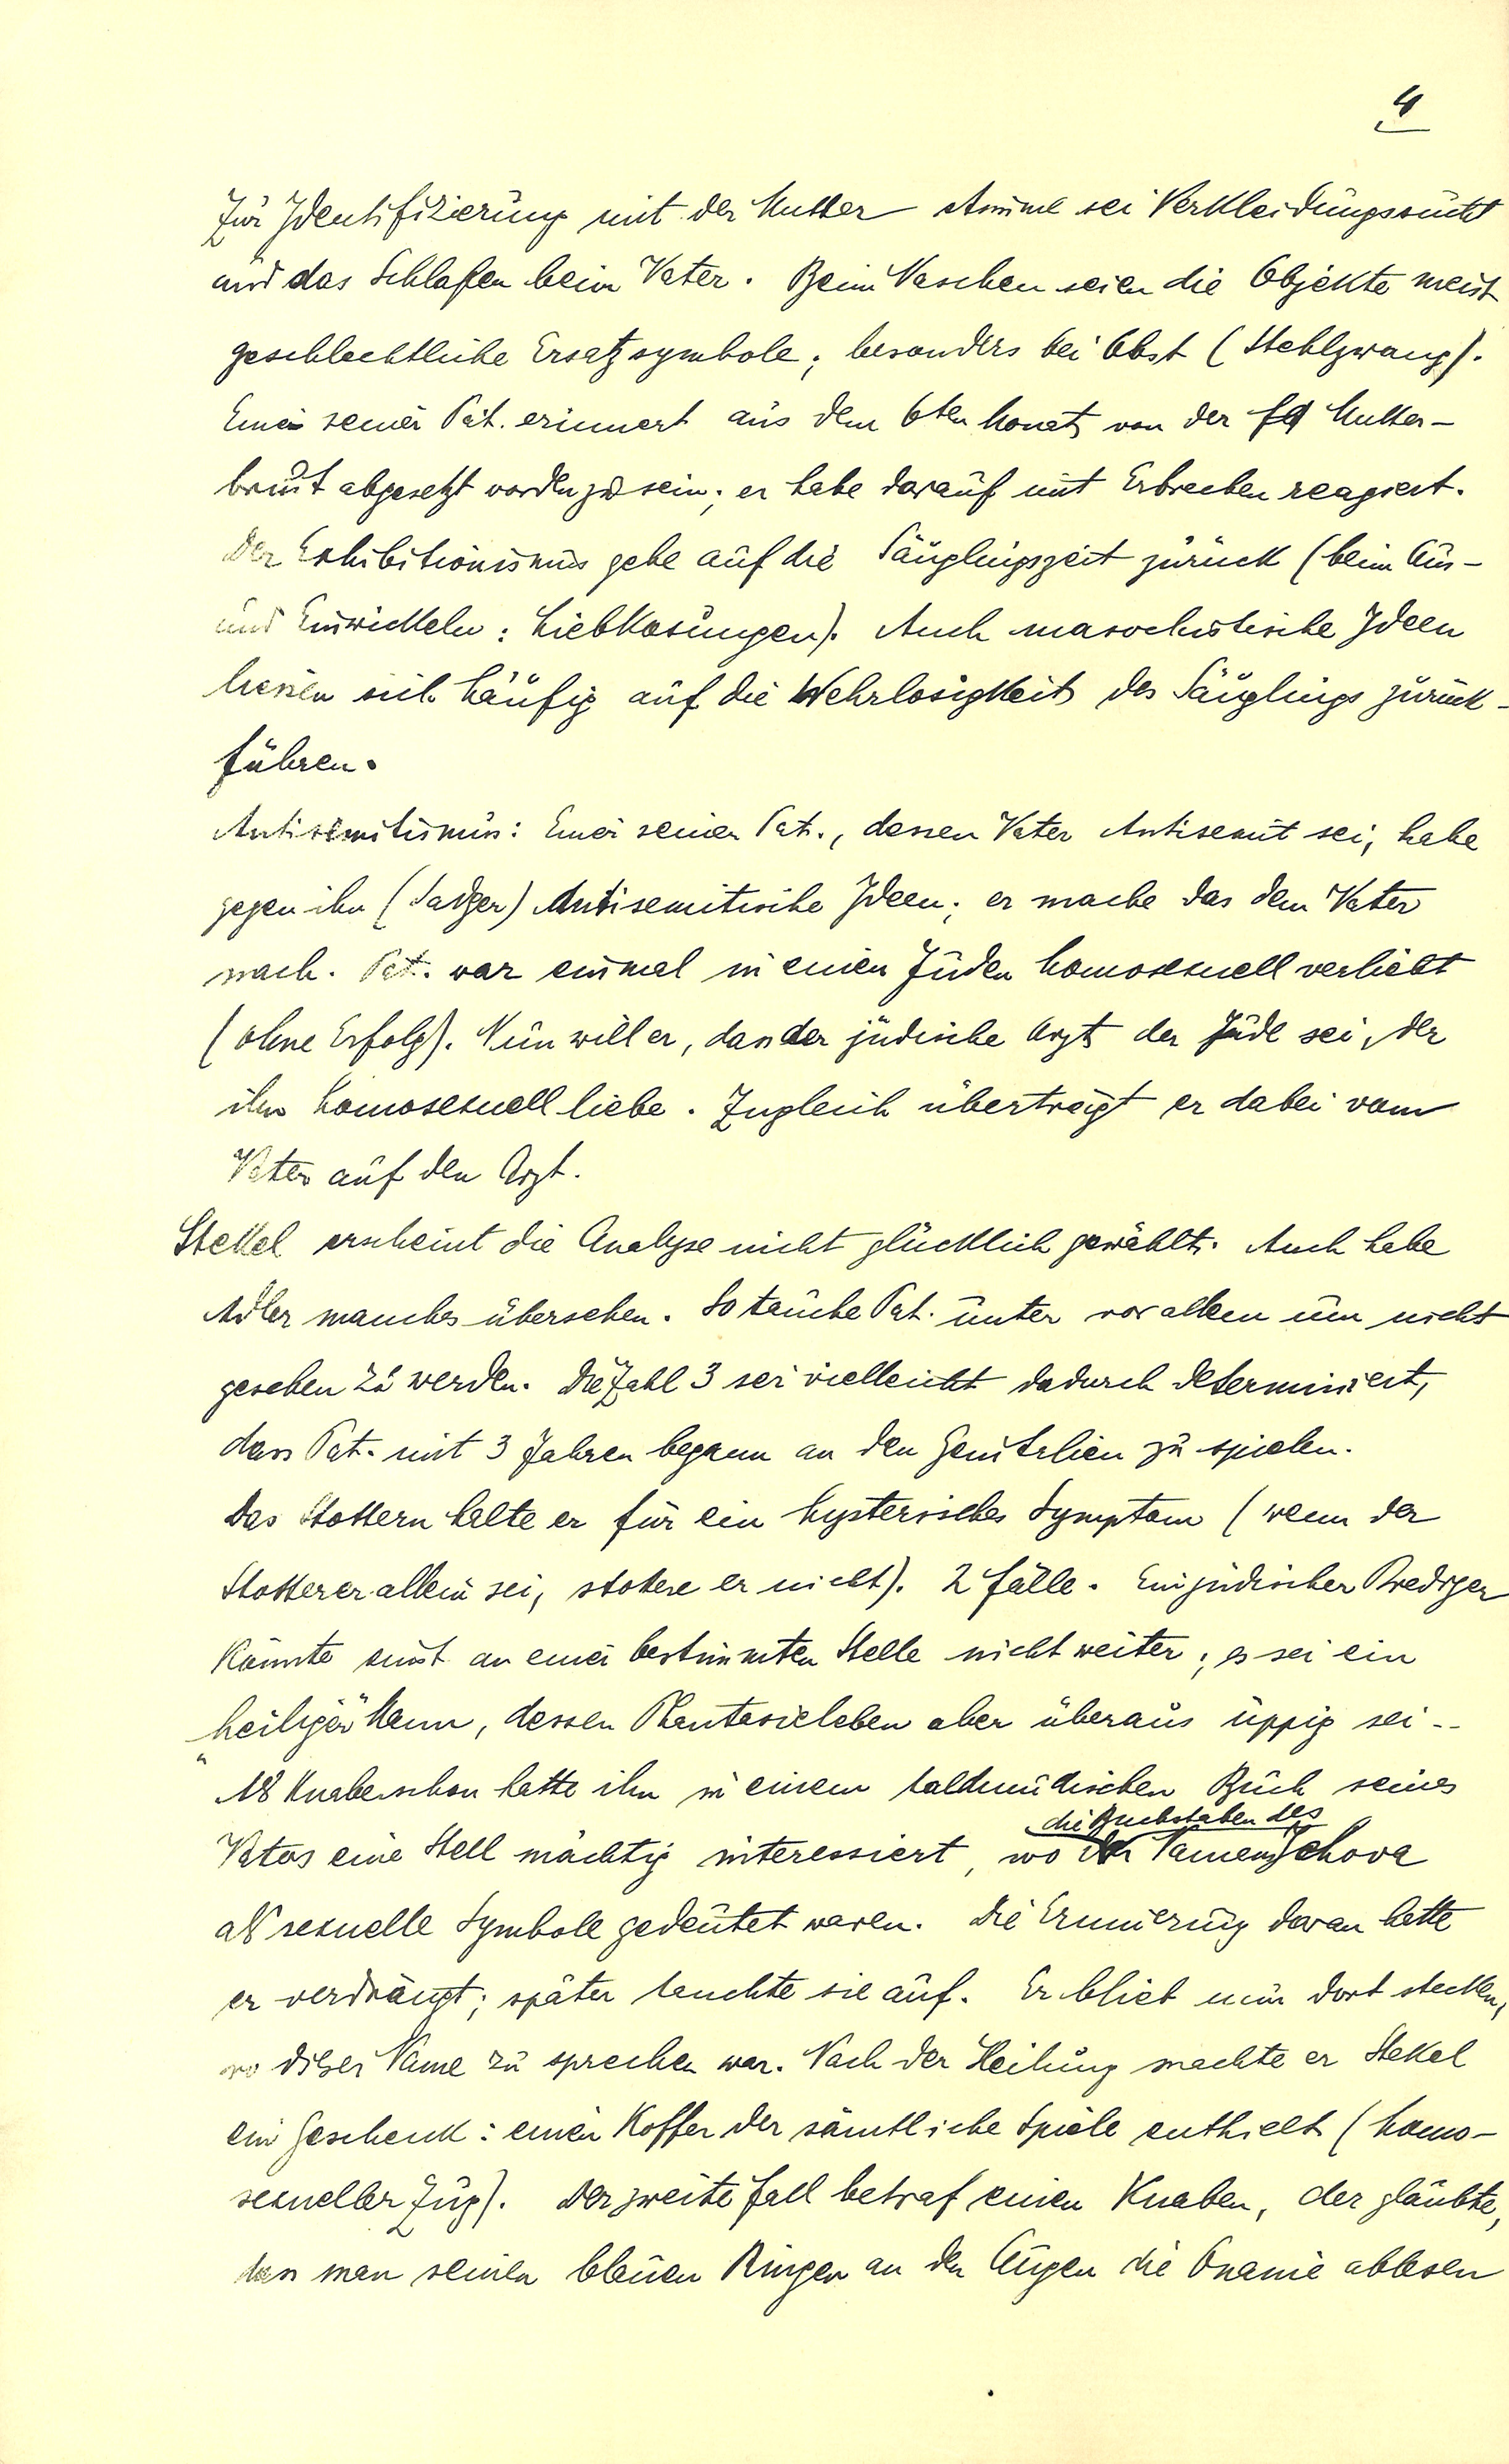 4
Zur Identifizierung mit der Mutter stimme sei Verkleidungssucht
und das Schlafen beim Vater. Beim Naschen seien die Objekte meist
geschlechtliche Ersatzsymbole; besonders bei Obst (Stehlzwang).
Einer seiner Pat. erinnert aus dem 6ten Monat von der Mutter-
brust abgesetzt worden zu sein; er habe darauf mit Erbrechen reagiert.
Der Exhibitionismus gehe auf die Säuglingszeit zurück (beim Aus-
und Einwickeln: Liebkosungen). Auch masochistische Ideen
liessen sich häufig auf die Wehrlosigkeit des Säuglings zurück-
führen.
Antisemitismus: Einer seiner Pat., dessen Vater Antisemit sei, habe
gegen ihn (Sadger) Antisemitische Ideen; er mache das dem Vater
nach. Pat. war einmal in einen Juden homosexuell verliebt
(ohne Erfolg). Nun will er, dass der jüdische Arzt der Jude sei, der
ihn homosexuell liebe. Zugleich überträgt er dabei vom
Vater auf den Arzt.
Stekel erscheint die Analyse nicht glücklich gewählt. Auch habe
Adler manches übersehen. So tauche Pat. unter vor allem um nicht
gesehen zu werden. Die Zahl 3 sei vielleicht dadurch determiniert,
dass Pat. mit 3 Jahren begann an den Genitalien zu spielen.
Das Stottern halte er für ein hysterisches Symptom (wenn der
Stotterer allein sei, stottere er nicht). 2 Fälle. Ein jüdischer Prediger
konnte einst an einer bestimmten Stelle nicht weiter; es sei ein
„heiliger" Mann, dessen Phantasieleben aber überaus üppig sei..
Als Knabe schon hatte ihn in einem taldmudischen Buch seines
Vaters eine Stell mächtig interessiert, wo die Buchstaben des Namens Jehova
als sexuelle Symbole gedeutet waren. Die Erinnerung daran hatte
er verdrängt; später tauchte sie auf. Er blieb nun dort stecken,
wo dieser Name zu sprechen war. Nach der Heilung machte er Stekel
ein Geschenk: einen Koffer der sämtliche Spiele enthielt (homo-
sexueller Zug). Der zweite Fall betraf einen Knaben, der glaubte,
dass man seinen blauen Ringen an den Augen die Onanie ablesen